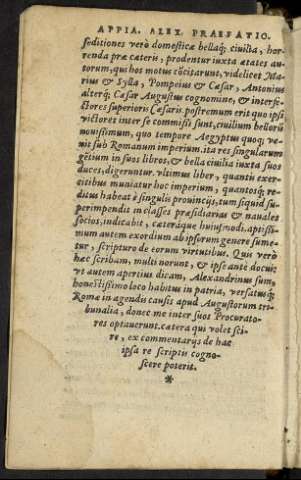 APPIA. ALEX. PRAEFATIO.
seditiones verò domesticæ bellaq́; ciuilia, hor-
renda præ cæteris, prodentur iuxta ætates au-
torum, qui hos motus cōcitarunt, videlicet Ma-
rius & Sylla, Pompeius & Cæsar, Antonius
alterq́; Cæsar Augustus cognomine, & interfe-
ctores superioris Cæsaris postremum erit quo ipsi
victores inter se commissi sunt, ciuilium bellorū
nouissimum, quo tempore Aegyptus quoq; ve-
nit sub Romanum imperium. ita res singularum
gētium in suos libros, & bella ciuilia iuxta suos
duces, digeruntur. vltimus liber, quantū exer-
citibus muniatur hoc imperium, quantosq́; re-
ditus habeat è singulis prouincijs, tum siquid su-
perimpendit in classes præsidiarias & nauales
socios, indicabit, cæteráque huiusmodi. aptissi-
mum autem exordium ab ipsorum genere sume-
tur, scripturo de eorum virtutibus. Quis verò
hæc scribam, multi norunt, & ipse antè docui:
vt autem apertius dicam, Alexandrinus sum,
honestissimo loco habitus in patria, versatusq́;
Romæ in agendis causis apud Augustorum tri-
bunalia, donec me inter suos Procurato-
res optauerunt. cætera qui volet sci-
re, ex commentarijs de hac
ipsa re scriptis cogno-
scere poterit.
*